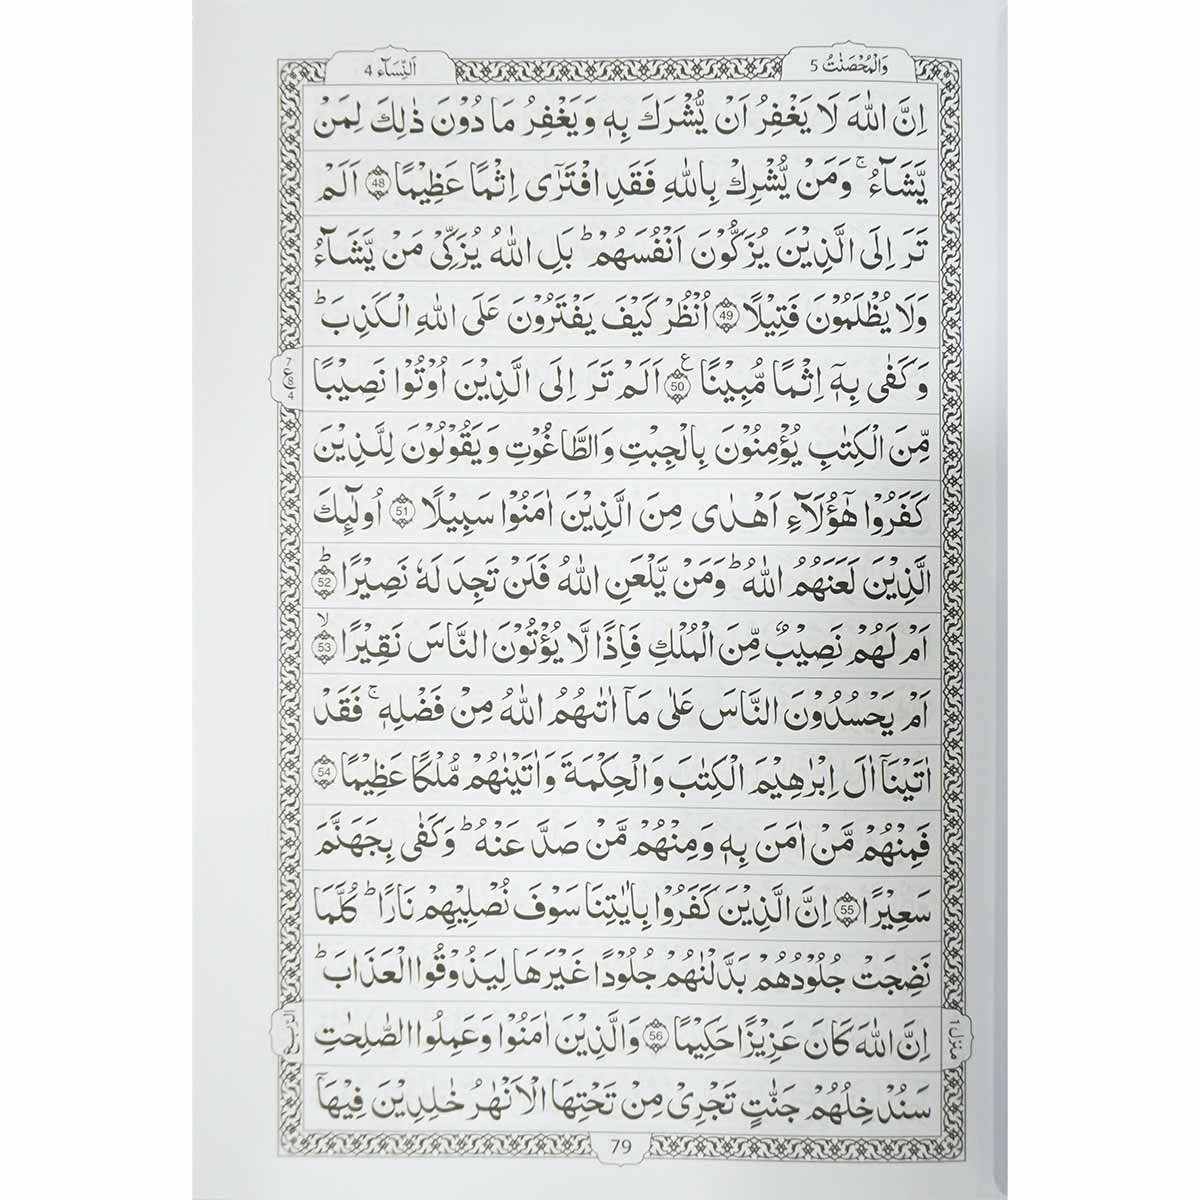 اَلنِّسَآء 4
وَالْمُحْصَنٰتُ 5
اِنَّ اللّٰهَ لَا يَغْفِرُ اَنْ يُّشْرَكَ بِهٖ وَيَغْفِرُ مَا دُوْنَ ذٰلِكَ لِمَنْ
يَّشَآءُ ۚ وَمَنْ يُّشْرِكْ بِاللّٰهِ فَقَدِ افْتَرٰٓى اِثْمًا عَظِيْمًا 48 اَلَمْ
تَرَ اِلَى الَّذِيْنَ يُزَكُّوْنَ اَنْفُسَهُمْ ؕ بَلِ اللّٰهُ يُزَكِّىْ مَنْ يَّشَآءُ
وَلَا يُظْلَمُوْنَ فَتِيْلًا 49 اُنْظُرْ كَيْفَ يَفْتَرُوْنَ عَلَى اللّٰهِ الْكَذِبَ ؕ
وَكَفٰى بِهٖۤ اِثْمًا مُّبِيْنًا ع 50 اَلَمْ تَرَ اِلَى الَّذِيْنَ اُوْتُوْا نَصِيْبًا
7 ع 8 4
مِّنَ الْكِتٰبِ يُؤْمِنُوْنَ بِالْجِبْتِ وَالطَّاغُوْتِ وَيَقُوْلُوْنَ لِلَّذِيْنَ
كَفَرُوْا هٰٓؤُلَآءِ اَهْدٰى مِنَ الَّذِيْنَ اٰمَنُوْا سَبِيْلًا 51 اُولٰٓئِكَ
الَّذِيْنَ لَعَنَهُمُ اللّٰهُ ؕ وَمَنْ يَّلْعَنِ اللّٰهُ فَلَنْ تَجِدَ لَهٗ نَصِيْرًا ؕ 52
اَمْ لَهُمْ نَصِيْبٌ مِّنَ الْمُلْكِ فَاِذًا لَّا يُؤْتُوْنَ النَّاسَ نَقِيْرًا ۙ 53
اَمْ يَحْسُدُوْنَ النَّاسَ عَلٰى مَاۤ اٰتٰىهُمُ اللّٰهُ مِنْ فَضْلِهٖ ۚ فَقَدْ
اٰتَيْنَاۤ اٰلَ اِبْرٰهِيْمَ الْكِتٰبَ وَالْحِكْمَةَ وَاٰتَيْنٰهُمْ مُّلْكًا عَظِيْمًا 54
فَمِنْهُمْ مَّنْ اٰمَنَ بِهٖ وَمِنْهُمْ مَّنْ صَدَّ عَنْهُ ؕ وَكَفٰى بِجَهَنَّمَ
سَعِيْرًا 55 اِنَّ الَّذِيْنَ كَفَرُوْا بِاٰيٰتِنَا سَوْفَ نُصْلِيْهِمْ نَارًا ؕ كُلَّمَا
نَضِجَتْ جُلُوْدُهُمْ بَدَّلْنٰهُمْ جُلُوْدًا غَيْرَهَا لِيَذُوْقُوا الْعَذَابَ ؕ
اِنَّ اللّٰهَ كَانَ عَزِيْزًا حَكِيْمًا 56 وَالَّذِيْنَ اٰمَنُوْا وَعَمِلُوا الصّٰلِحٰتِ
منزل ۱
الربع
سَنُدْخِلُهُمْ جَنّٰتٍ تَجْرِىْ مِنْ تَحْتِهَا الْاَنْهٰرُ خٰلِدِيْنَ فِيْهَاۤ
79